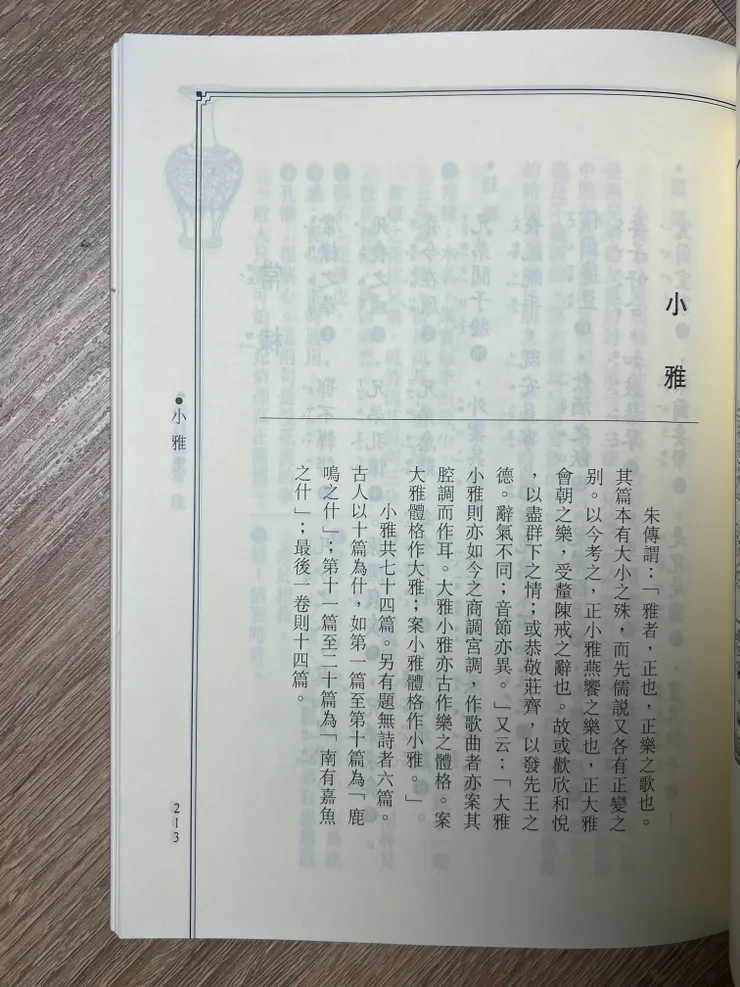 小雅
朱傳謂：「雅者，正也，正樂之歌也。
其篇本有大小之殊，而先儒說又各有正變之
別。以今考之，正小雅燕饗之樂也，正大雅
會朝之樂，受釐陳戒之辭也。故或歡欣和悅
，以盡群下之情；或恭敬莊齊，以發先王之
德。辭氣不同；音節亦異。」又云：「大雅
小雅則亦如今之商調宮調，作歌曲者亦案其
腔調而作耳。大雅小雅亦古作樂之體格。案
大雅體格作大雅；案小雅體格作小雅。」
小雅共七十四篇。另有題無詩者六篇。
古人以十篇為什，如第一篇至第十篇為「鹿
鳴之什」；第十一篇至二十篇為「南有嘉魚
之什」；最後一卷則十四篇。
●小雅
213